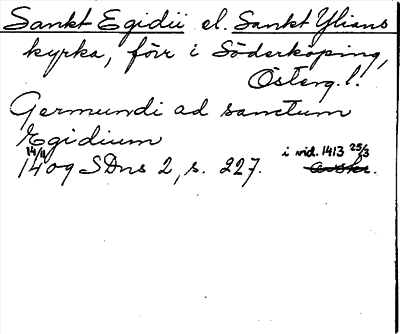 Sankt Egidii el. Sankt Ylians
kyrka, förr i Söderköping,
Österg. l.
Germundi ad sanctum
Egidium
14/11
1409 SDns 2, s. 227. i vid. 1413 25/3
avskr.